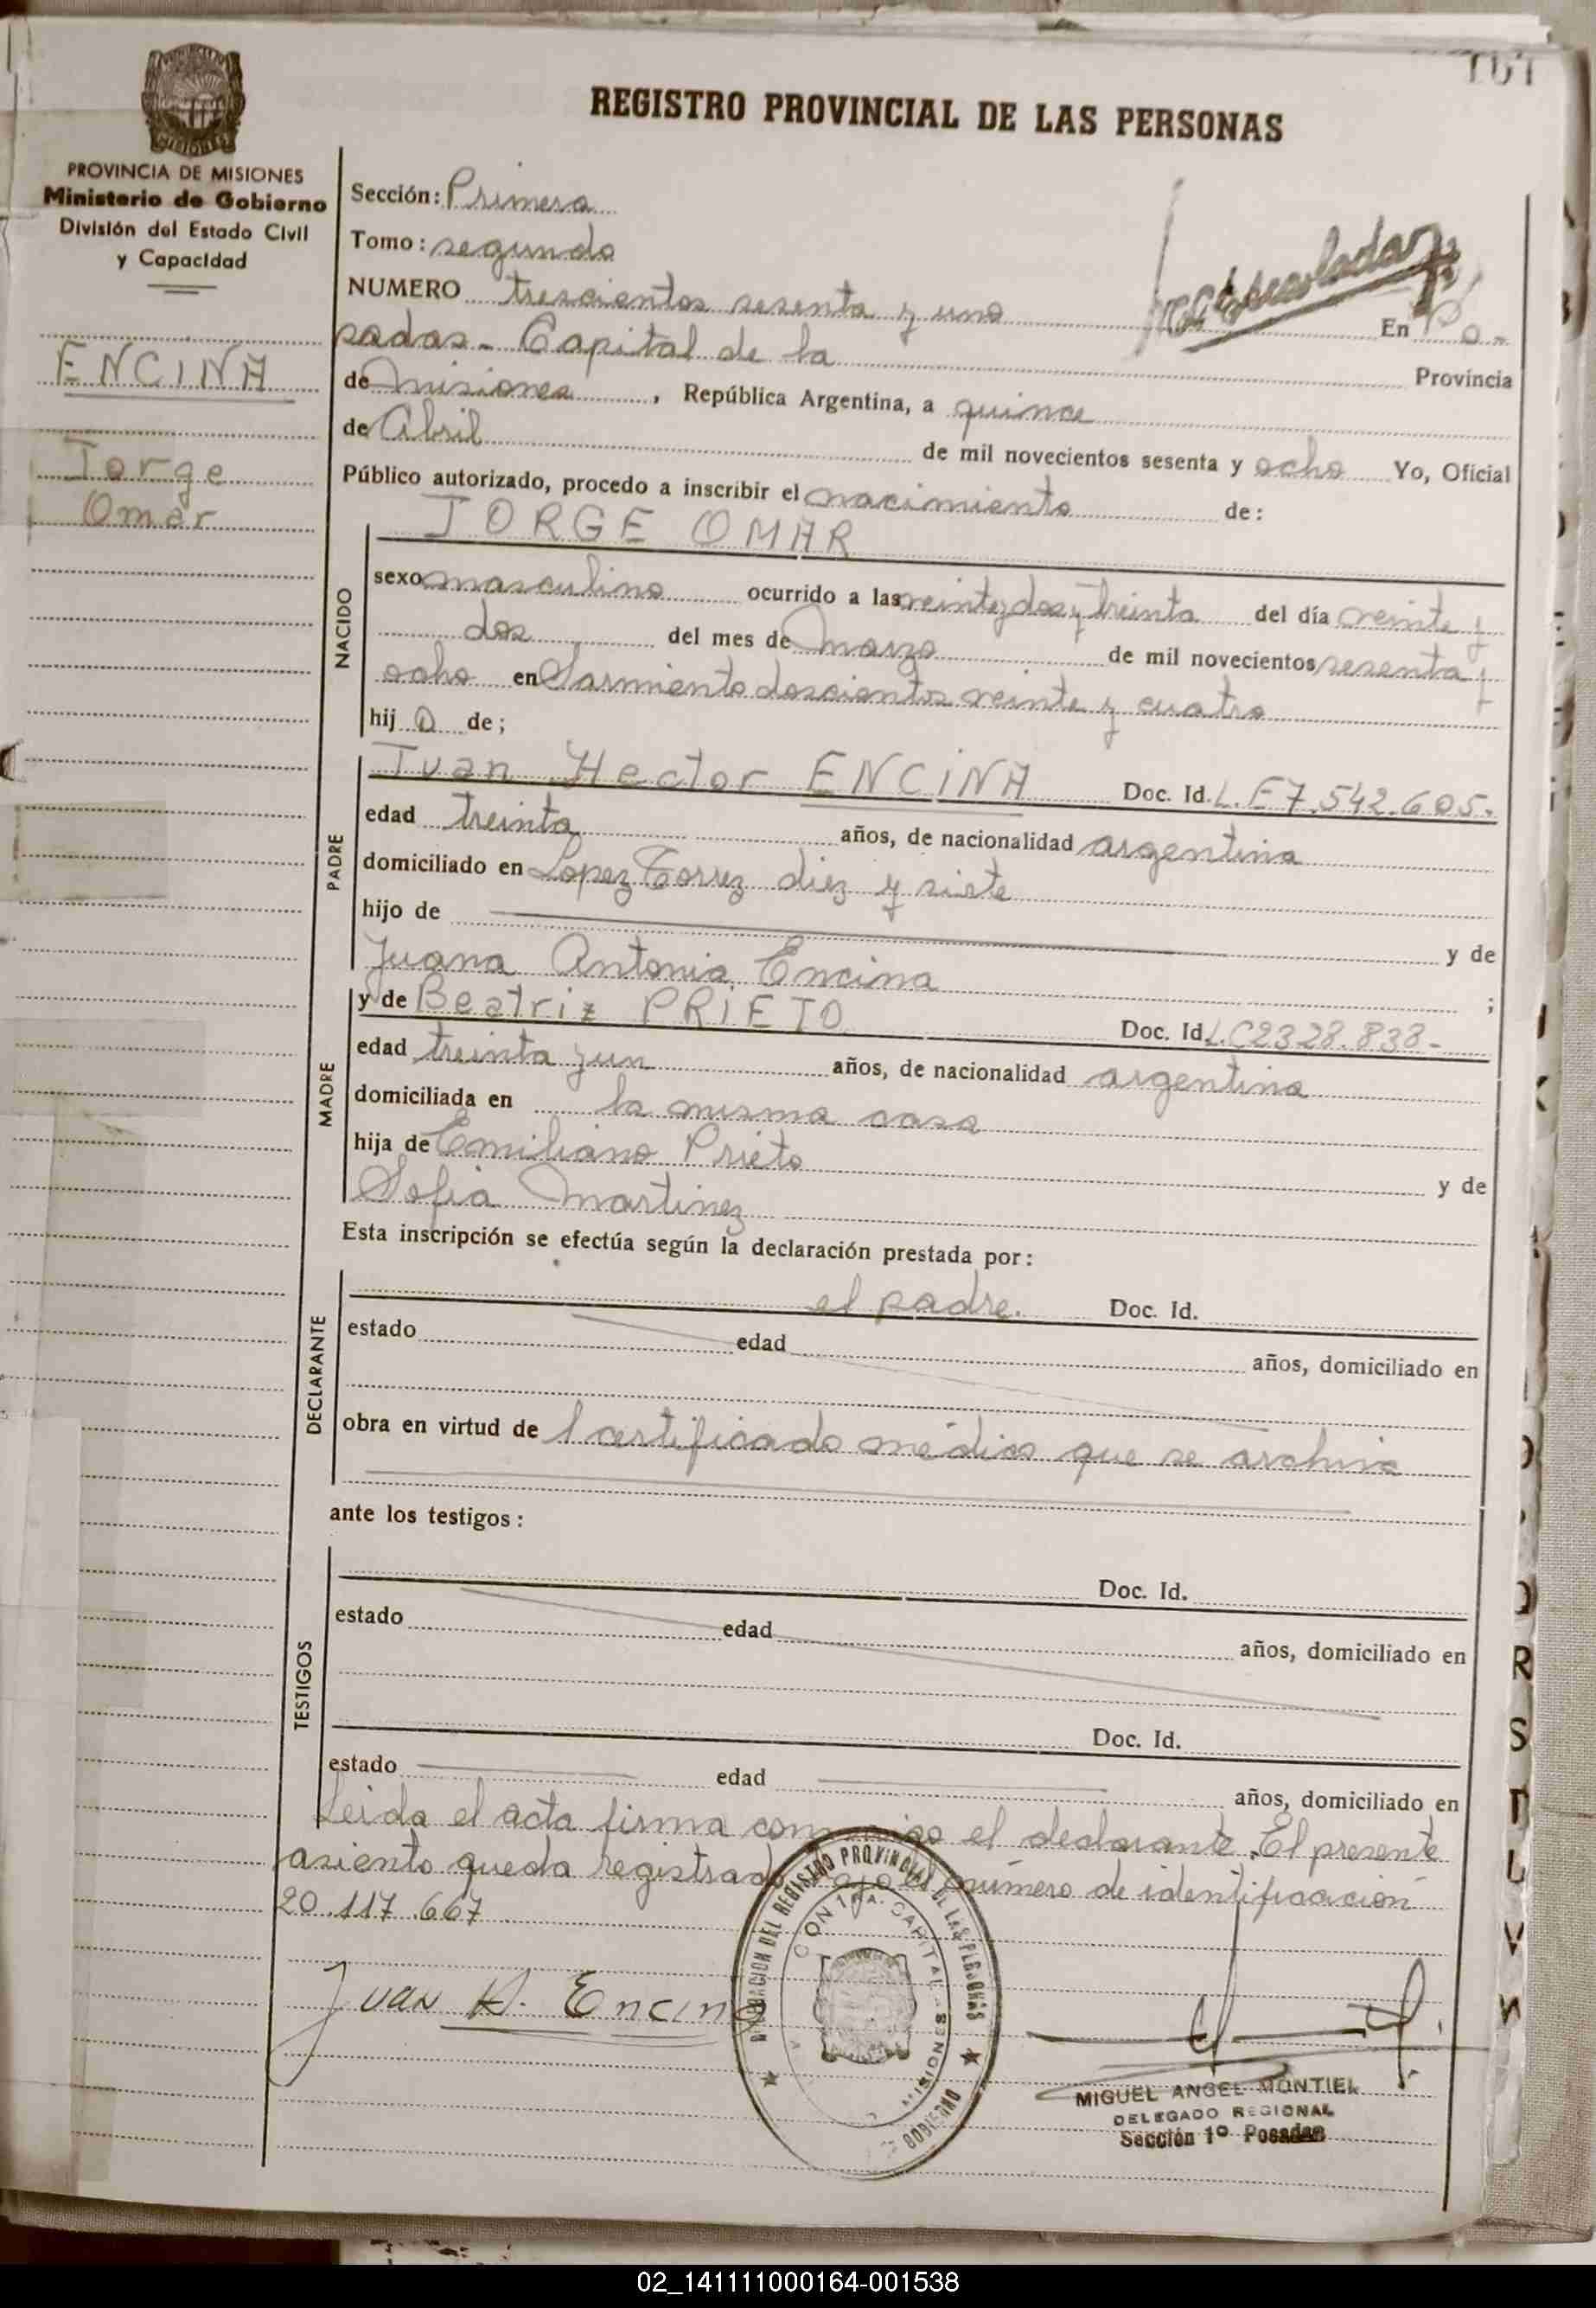 161
REGISTRO PROVINCIAL DE LAS PERSONAS
PROVINCIA DE MISIONES
Ministerio de Gobierno
División del Estado Civil
y Capacidad
ENCINA
Jorge
Omar
Sección: Primera
Tomo: segundo
NUMERO trescientos sesenta y uno En Po-
sadas - Capital de la Provincia
de Misiones, República Argentina, a quince
de Abril de mil novecientos sesenta y ocho Yo, Oficial
Público autorizado, procedo a inscribir el nacimiento de:
JORGE OMAR
NACIDO
sexo masculino ocurrido a las veinte y dos y treinta del día veinte y
dos del mes de marzo de mil novecientos sesenta y
ocho en Sarmiento doscientos veinte y cuatro
hijo de;
PADRE
Juan Hector ENCINA Doc. Id. L.E 7.542.605.
edad treinta años, de nacionalidad argentina
domiciliado en Lopez Torrez diez y siete
hijo de y de
Juana Antonia Encina ;
MADRE
y de Beatriz PRIETO Doc. Id L.C 2328.838-
edad treinta y un años, de nacionalidad argentina
domiciliada en la misma casa
hija de Emiliano Prieto y de
Sofia Martinez
Esta inscripción se efectúa según la declaración prestada por:
DECLARANTE
el padre. Doc. Id.
estado edad años, domiciliado en
obra en virtud de l certificado médico que se archiva
ante los testigos:
TESTIGOS
Doc. Id.
estado edad años, domiciliado en
Doc. Id.
estado edad años, domiciliado en
Leida el acta firma conmigo el declarante. El presente
asiento queda registrado bajo el número de identificación
20.117.667
Juan H. Encina
MIGUEL ANGEL MONTIEL
DELEGADO REGIONAL
Sección 1º Posadas
02_141111000164-001538